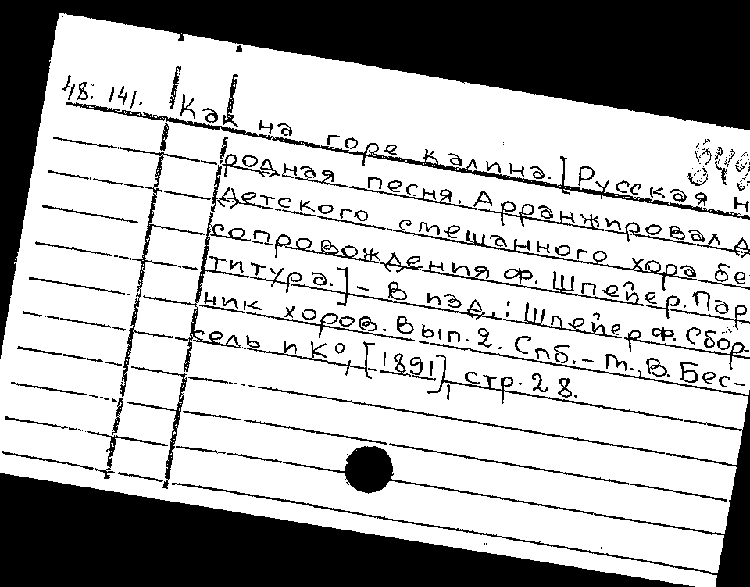 48: 141.
Как на горе калина. [Русская н
849
родная песня. Арранжировал д
детского смешанного хора бе
сопровождения Ф. Шпейер. Пар
титура.] - В изд.: Шпейер Ф. Сбор
ник хоров. Вып. 2. Спб. - М., В. Бес-
сель и К°, [1891], стр. 28.